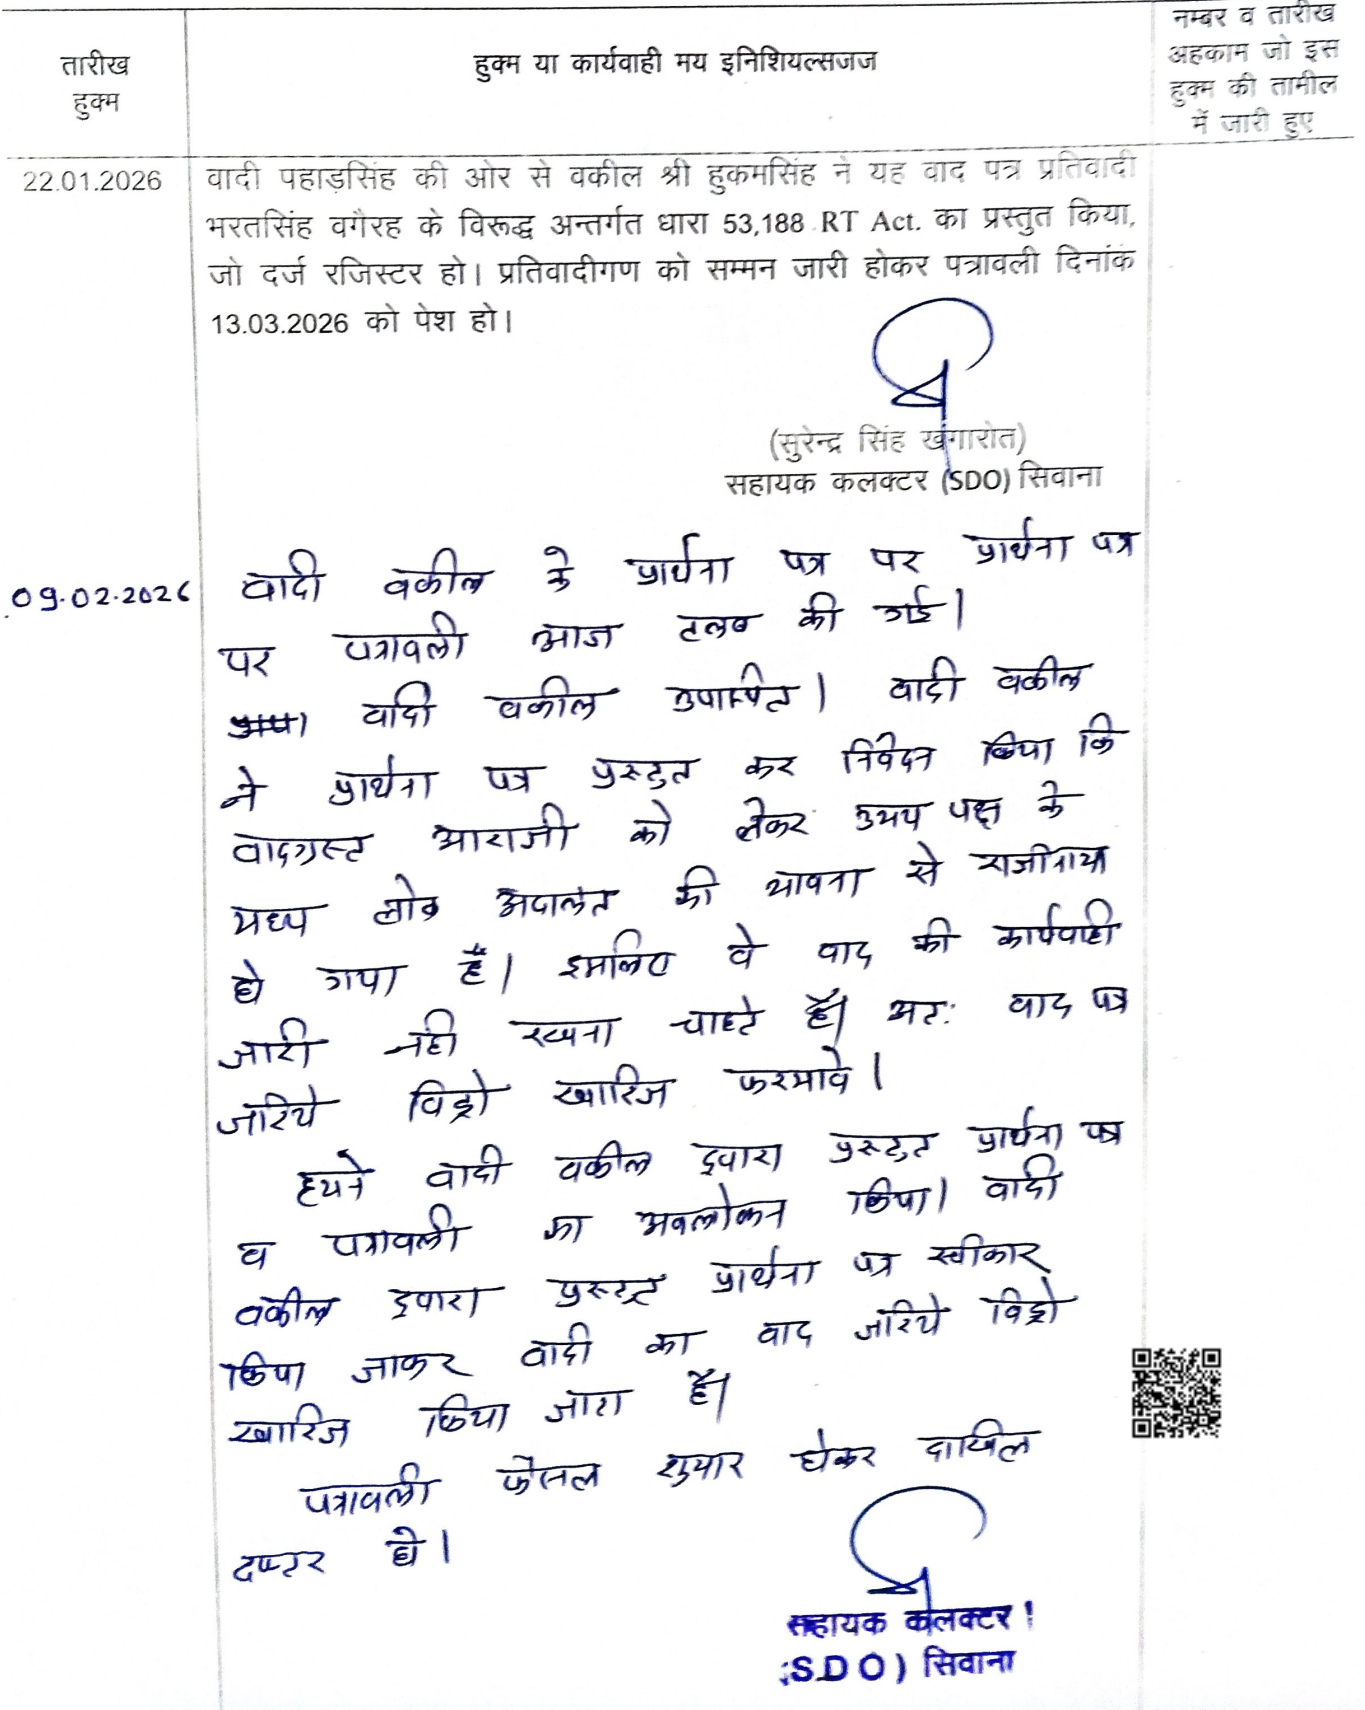 तारीख
हुक्म
हुक्म या कार्यवाही मय इनिशियल्सजज
नम्बर व तारीख
अहकाम जो इस
हुक्म की तामील
में जारी हुए
22.01.2026
वादी पहाड़सिंह की ओर से वकील श्री हुकमसिंह ने यह वाद पत्र प्रतिवादी
भरतसिंह वगैरह के विरूद्ध अन्तर्गत धारा 53,188 RT Act. का प्रस्तुत किया,
जो दर्ज रजिस्टर हो। प्रतिवादीगण को सम्मन जारी होकर पत्रावली दिनांक
13.03.2026 को पेश हो।
(सुरेन्द्र सिंह खंगारोत)
सहायक कलक्टर (SDO) सिवाना
09.02.2026
वादी वकील के प्रार्थना पत्र पर प्रार्थना पत्र
पर पत्रावली आज तलब की गई।
वादी वकील उपस्थित। वादी वकील
ने प्रार्थना पत्र प्रस्तुत कर निवेदन किया कि
वादग्रस्त आराजी को लेकर उभय पक्ष के
मध्य लोक अदालत की भावना से राजीनामा
हो गया है। इसलिए वे वाद की कार्यवाही
जारी नही रखना चाहते है। अतः वाद पत्र
जरिये विड्रो खारिज फरमावे।
हमने वादी वकील द्वारा प्रस्तुत प्रार्थना पत्र
व पत्रावली का अवलोकन किया। वादी
वकील द्वारा प्रस्तुत प्रार्थना पत्र स्वीकार
किया जाकर वादी का वाद जरिये विड्रो
खारिज किया जाता है।
पत्रावली फैसल शुमार होकर दाखिल
दफ्तर हो।
सहायक कलक्टर
(SDO) सिवाना